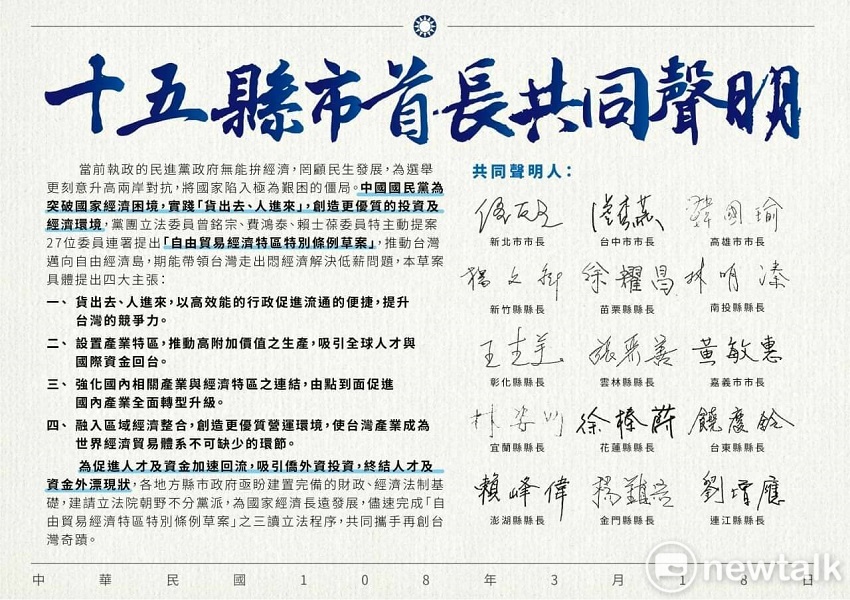 十五縣市首長共同聲明
當前執政的民進黨政府無能拚經濟，罔顧民生發展，為選舉
更刻意升高兩岸對抗，將國家陷入極為艱困的僵局。中國國民黨為
突破國家經濟困境，實踐「貨出去、人進來」，創造更優質的投資及
經濟環境，黨團立法委員曾銘宗、費鴻泰、賴士葆委員特主動提案
27位委員連署提出「自由貿易經濟特區特別條例草案」，推動台灣
邁向自由經濟島，期能帶領台灣走出悶經濟解決低薪問題，本草案
具體提出四大主張：
一、 貨出去、人進來，以高效能的行政促進流通的便捷，提升
台灣的競爭力。
二、 設置產業特區，推動高附加價值之生產，吸引全球人才與
國際資金回台。
三、 強化國內相關產業與經濟特區之連結，由點到面促進
國內產業全面轉型升級。
四、 融入區域經濟整合，創造更優質營運環境，使台灣產業成為
世界經濟貿易體系不可缺少的環節。
為促進人才及資金加速回流，吸引僑外資投資，終結人才及
資金外漂現狀，各地方縣市政府亟盼建置完備的財政、經濟法制基
礎，建請立法院朝野不分黨派，為國家經濟長遠發展，儘速完成「自
由貿易經濟特區特別條例草案」之三讀立法程序，共同攜手再創台
灣奇蹟。
共同聲明人：
侯友宜 盧秀燕 韓國瑜
新北市市長 台中市市長 高雄市市長
楊文科 徐耀昌 林明溱
新竹縣縣長 苗栗縣縣長 南投縣縣長
王惠美 張麗善 黃敏惠
彰化縣縣長 雲林縣縣長 嘉義市市長
林姿妙 徐榛蔚 饒慶鈴
宜蘭縣縣長 花蓮縣縣長 台東縣縣長
賴峰偉 楊鎮浯 劉增應
澎湖縣縣長 金門縣縣長 連江縣縣長
中華民國108年3月18日
newtalk